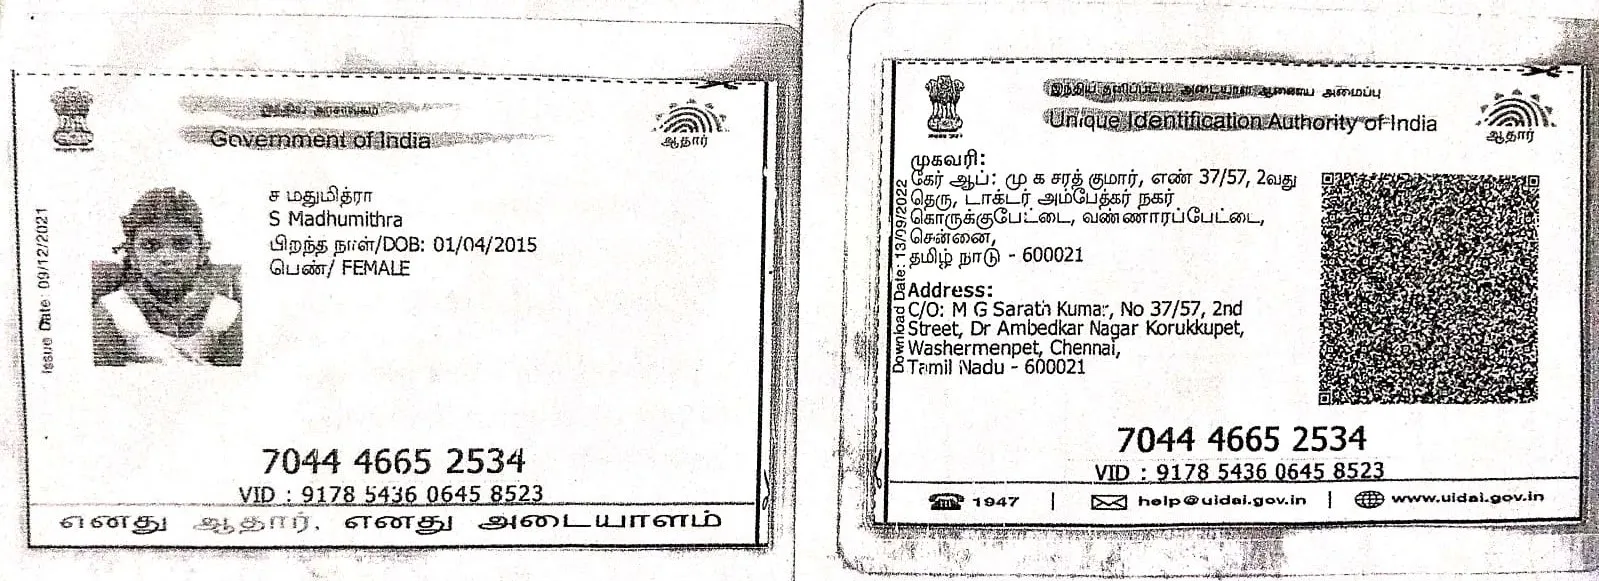 இந்திய அரசாங்கம்
Government of India
ஆதார்
Issue Date: 09/12/2021
ச மதுமித்ரா
S Madhumithra
பிறந்த நாள்/DOB: 01/04/2015
பெண்/ FEMALE
7044 4665 2534
VID : 9178 5436 0645 8523
எனது ஆதார், எனது அடையாளம்
இந்திய தனிப்பட்ட அடையாள ஆணைய அமைப்பு
Unique Identification Authority of India
ஆதார்
Download Date: 13/09/2022
முகவரி:
கேர் ஆப்: மு க சரத் குமார், எண் 37/57, 2வது
தெரு, டாக்டர் அம்பேத்கர் நகர்
கொருக்குபேட்டை, வண்ணாரப்பேட்டை,
சென்னை,
தமிழ் நாடு - 600021
Address:
C/O: M G Sarath Kumar, No 37/57, 2nd
Street, Dr Ambedkar Nagar Korukkupet,
Washermenpet, Chennai,
Tamil Nadu - 600021
7044 4665 2534
VID : 9178 5436 0645 8523
1947 | help@uidai.gov.in | www.uidai.gov.in